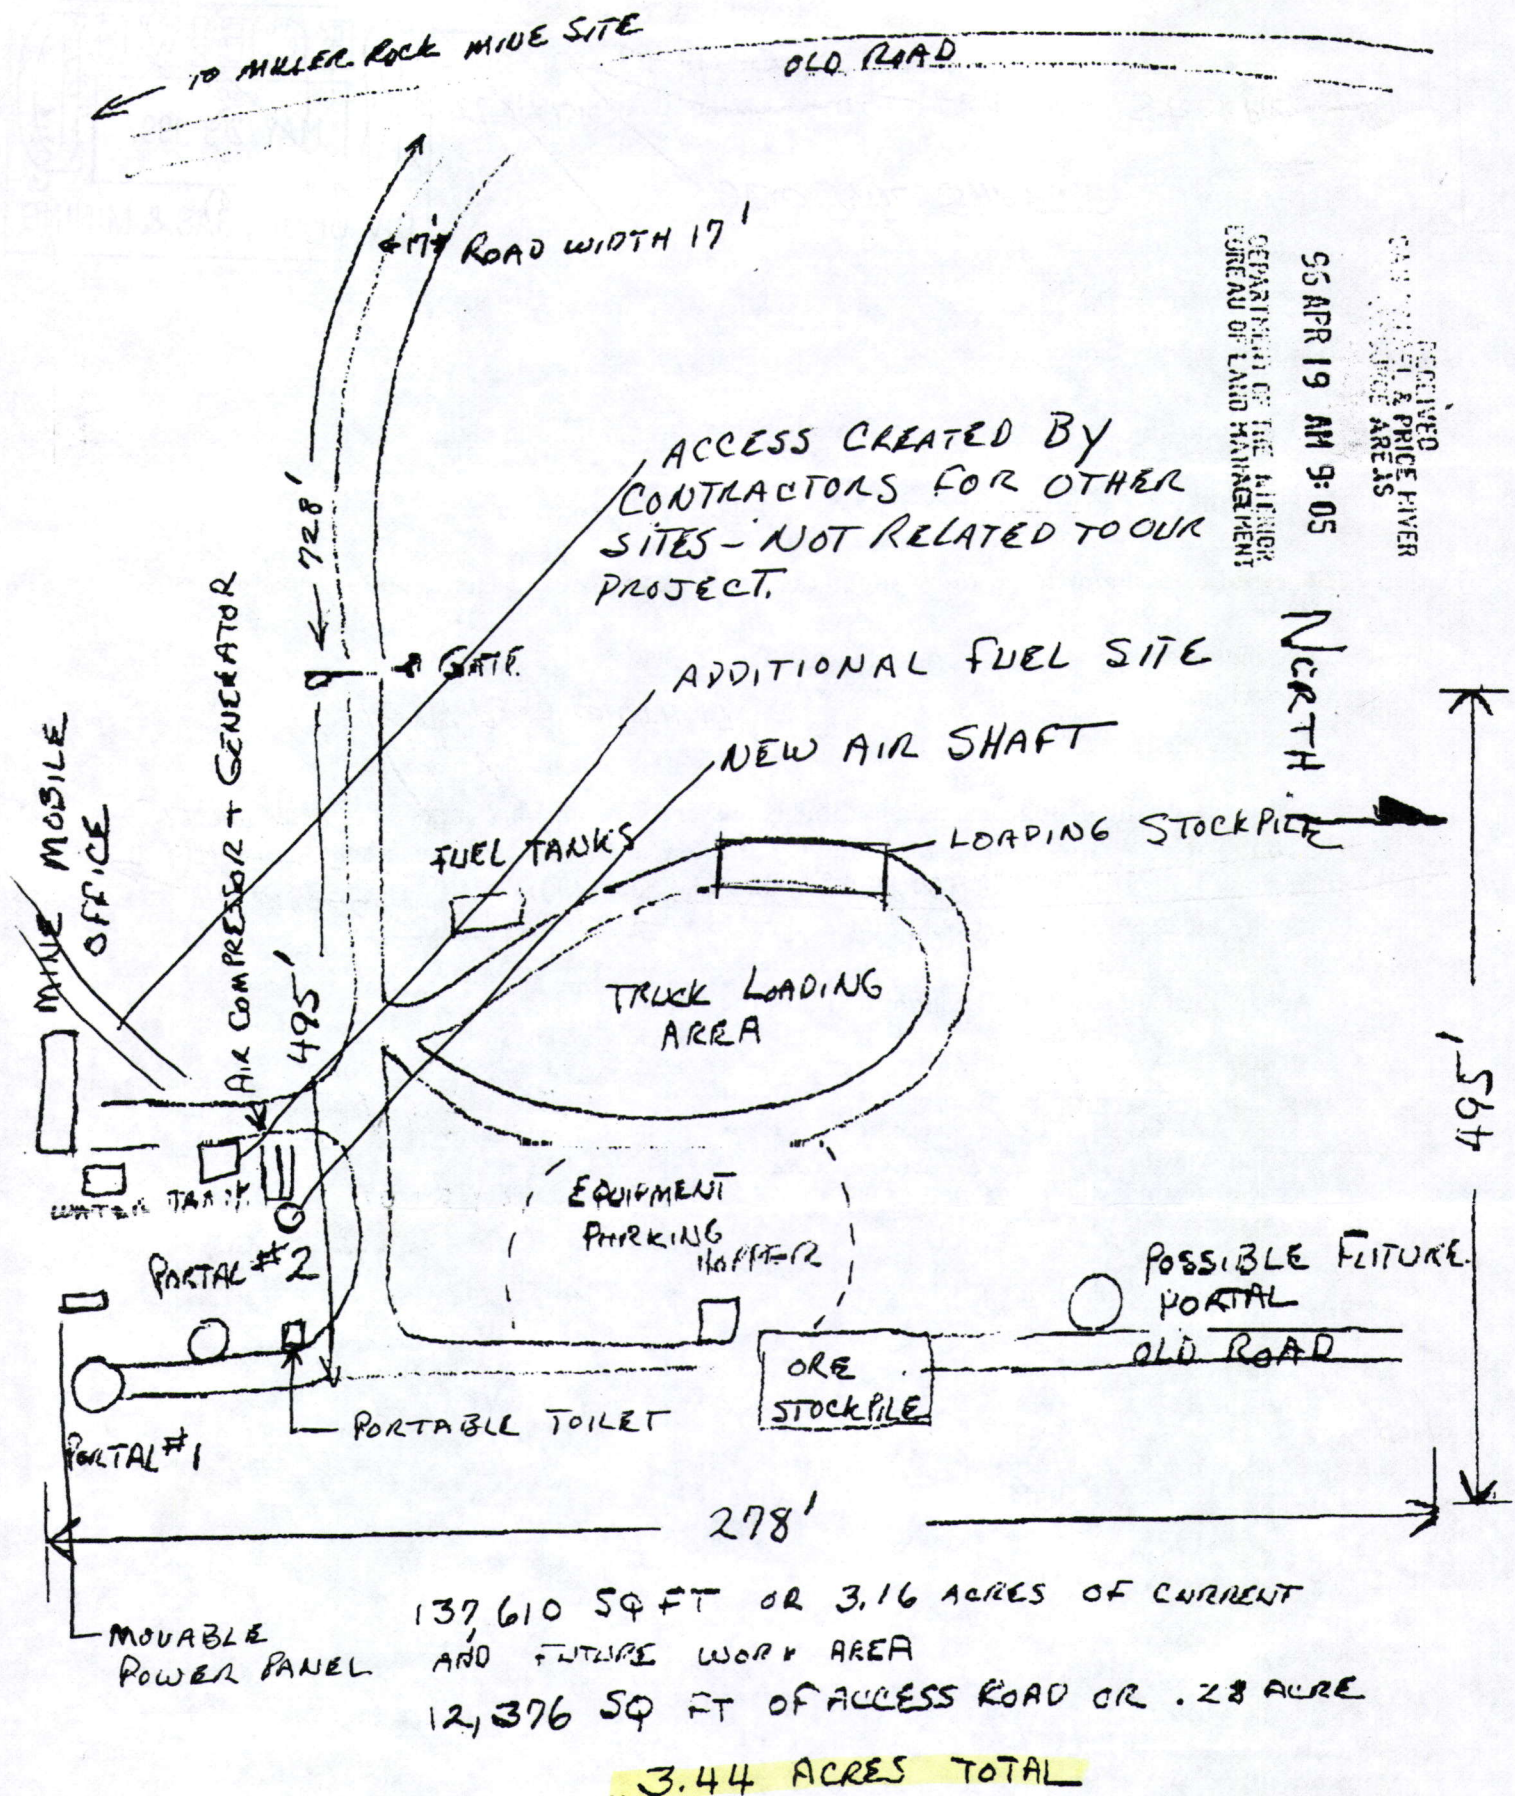 TO MILLER ROCK MINE SITE
OLD ROAD
17'
ROAD WIDTH 17'
RECEIVED
& PRICE RIVER
AREAS
96 APR 19 AM 9:05
DEPARTMENT OF THE INTERIOR
BUREAU OF LAND MANAGEMENT
ACCESS CREATED BY
CONTRACTORS FOR OTHER
SITES - NOT RELATED TO OUR
PROJECT.
728'
GATE
ADDITIONAL FUEL SITE
NORTH
NEW AIR SHAFT
MINE MOBILE
OFFICE
AIR COMPRESSOR + GENERATOR
FUEL TANKS
LOADING STOCKPILE
495'
TRUCK LOADING
AREA
495'
WATER TANK
EQUIPMENT
PARKING
HOPPER
PORTAL #2
POSSIBLE FUTURE
PORTAL
OLD ROAD
ORE
STOCKPILE
PORTABLE TOILET
PORTAL #1
278'
MOVABLE
POWER PANEL
137,610 SQ FT OR 3.16 ACRES OF CURRENT
AND FUTURE WORK AREA
12,376 SQ FT OF ACCESS ROAD OR .28 ACRE
3.44 ACRES TOTAL